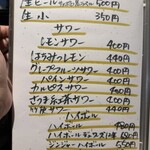 生ビール 500円
生小 350円
サワー
レモンサワー 400円
はちみつレモン 440円
グレープフルーツサワー 440円
パインサワー 440円
カルピスサワー 440円
さつま紅茶サワー 440円
サワー 440円
ハイボール
ハイボール 480円
ハイボール
ジンジャーハイボール 550円